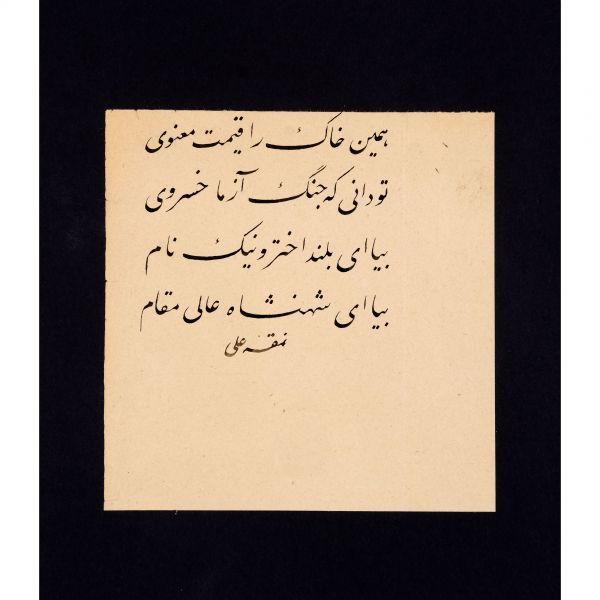 همین خاک را قیمت معنوی
تو دانی که جنگ آزما خسروی
بیا ای بلند اختر و نیک نام
بیا ای شهنشاه عالی مقام
نمقه علی